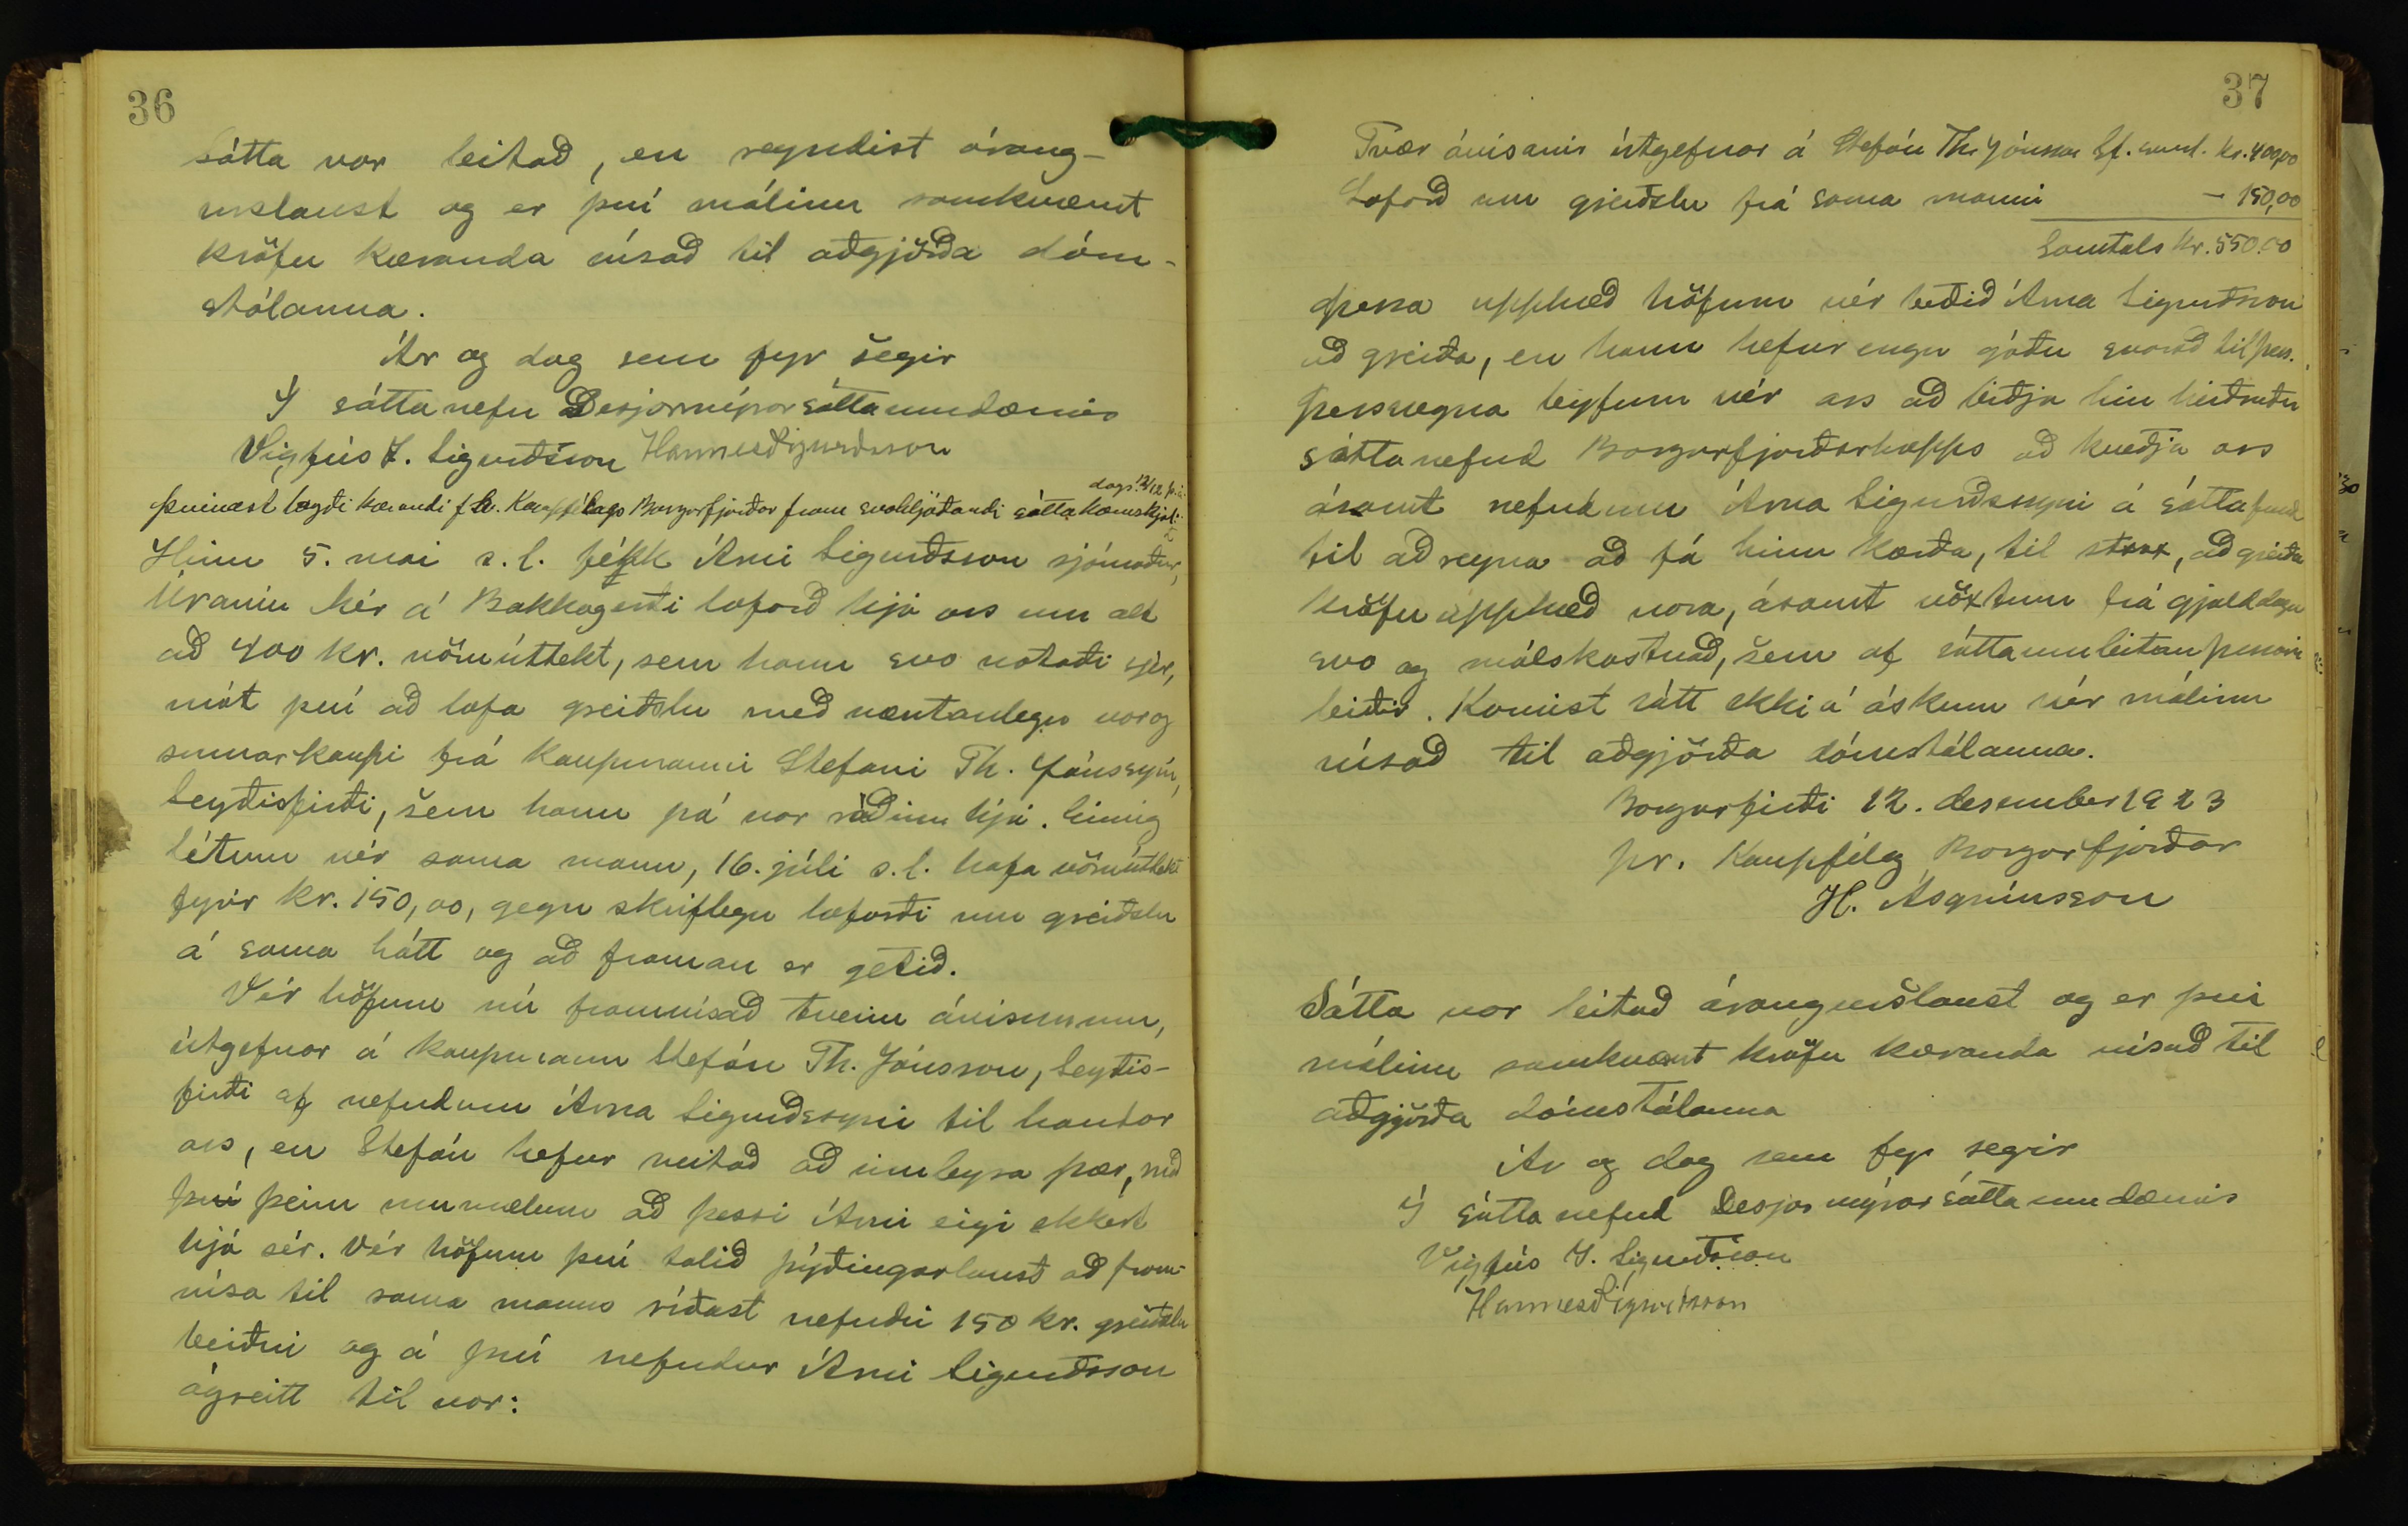 36
Sátta var leitað, en reyndist árang-
urslaust og er því málinu samkvæmt
kröfu kæranda vísað til aðgjörða dóm-
stólanna.
Ár og dag sem fyr segir
Í sáttanefn Desjarmýrarsáttaumdæmis
Vigfús I. Sigurðsson Hannes Sigurðsson
dags. 12/12 þ.á.
Þvínæst lagði kærandi f.h. Kaupfélags Borgarfjarðar fram svohljóðandi sáttakæruskjal:
Hinn 5. mai s.l. fékk Árni Sigurðsson sjómaður,
Úraníu hér á Bakkagerði loforð hjá oss um alt
að 400 kr. vöruúttekt, sem hann svo notaði sjer,
mót því að lofa greiðslu með væntanlegu vor og
sumarkaupi frá kaupmanni Stefani Th. Jónssyni,
Seyðisfirði, sem hann þá var ráðinn hjá. Einnig
létum vér sama mann, 16. júlí s.l. hafa vöruúttekt
fyrir kr. 150,00, gegn skriflegu loforði um greiðslu
á sama hátt og að framan er getið.
Vér höfum nú framvísað tveim ávísunum,
útgefnar á kaupmann Stefán Th. Jónsson, Seyðis-
firði af nefndum Árna Sigurðssyni til handar
oss, en Stefán hefur neitað að innleysa þær, með
því þeim ummælum að þessi Árni eigi ekkert
hjá sér. Vér höfum því talið þýðingarlaust að fram-
vísa til sama manns síðast nefndri 150 kr. greiðslu
beiðni og á því nefndur Árni Sigurðsson
ógreitt til vor:
37
Tvær ávísanir útgefnar á Stefán Th. Jónsson Sf. samt. kr. 400,00
Loforð um greiðslu frá sama manni – 150,00
Samtals kr. 550.00
Þessa upphæð höfum vér beðið Árna Sigurðsson
að greiða, en hann hefur engu góðu svarað til þess.
Þessvegna leyfum vér oss að biðja hina heiðruðu
sáttanefnd Borgarfjarðarhepps að kveðja oss
ásamt nefndum Árna Sigurðssyni á sáttafund
til að reyna að fá hinn kærða, til, að greiða
kröfuupphæð vora, ásamt vöxtum frá gjalddaga
svo og málskostnað, sem af sáttaumleitan þessari
leiðir. Komist sátt ekki á óskum vér málinu
vísað til aðgjörða dómstólanna.
Borgarfirði 12. desember 1923
pr. Kaupfélag Borgarfjarðar
H. Ásgrímsson
Sátta var leitað árangurslaust og er því
málinu samkvæmt kröfu kæranda vísað til
aðgjörða dómstólanna
Ár og dag sem fyr segir
Í sáttanefnd Desjarmýrarsáttaumdæmis
Vigfús I. Sigurðsson
Hannes Sigurðsson